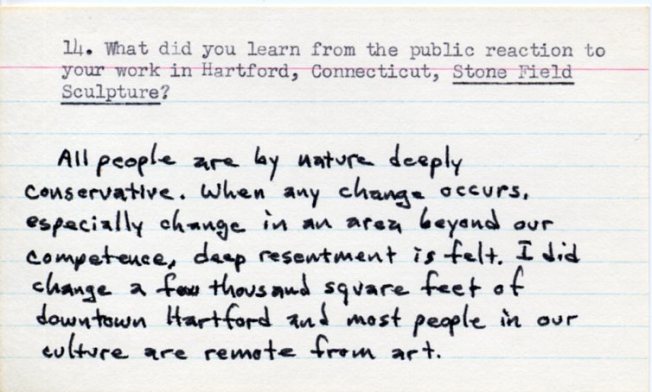 14. What did you learn from the public reaction to
your work in Hartford, Connecticut, Stone Field
Sculpture?
All people are by nature deeply
conservative. When any change occurs,
especially change in an area beyond our
competence, deep resentment is felt. I did
change a few thousand square feet of
downtown Hartford and most people in our
culture are remote from art.